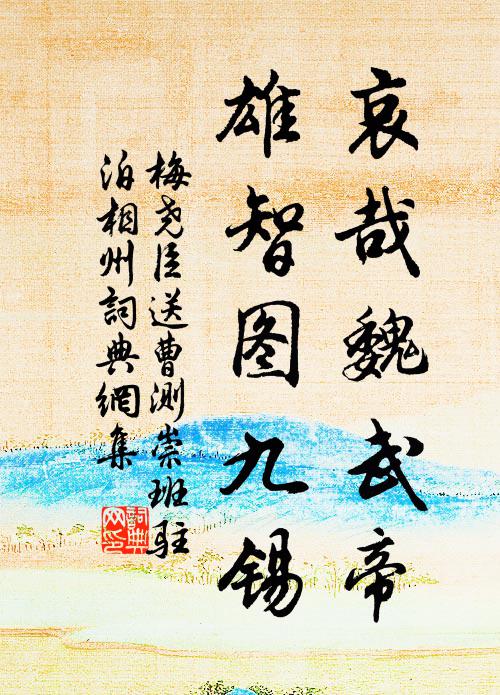 哀哉魏武帝
雄智图九锡
梅尧臣送曹测崇班驻
泊相州詞典網集
詞典网印